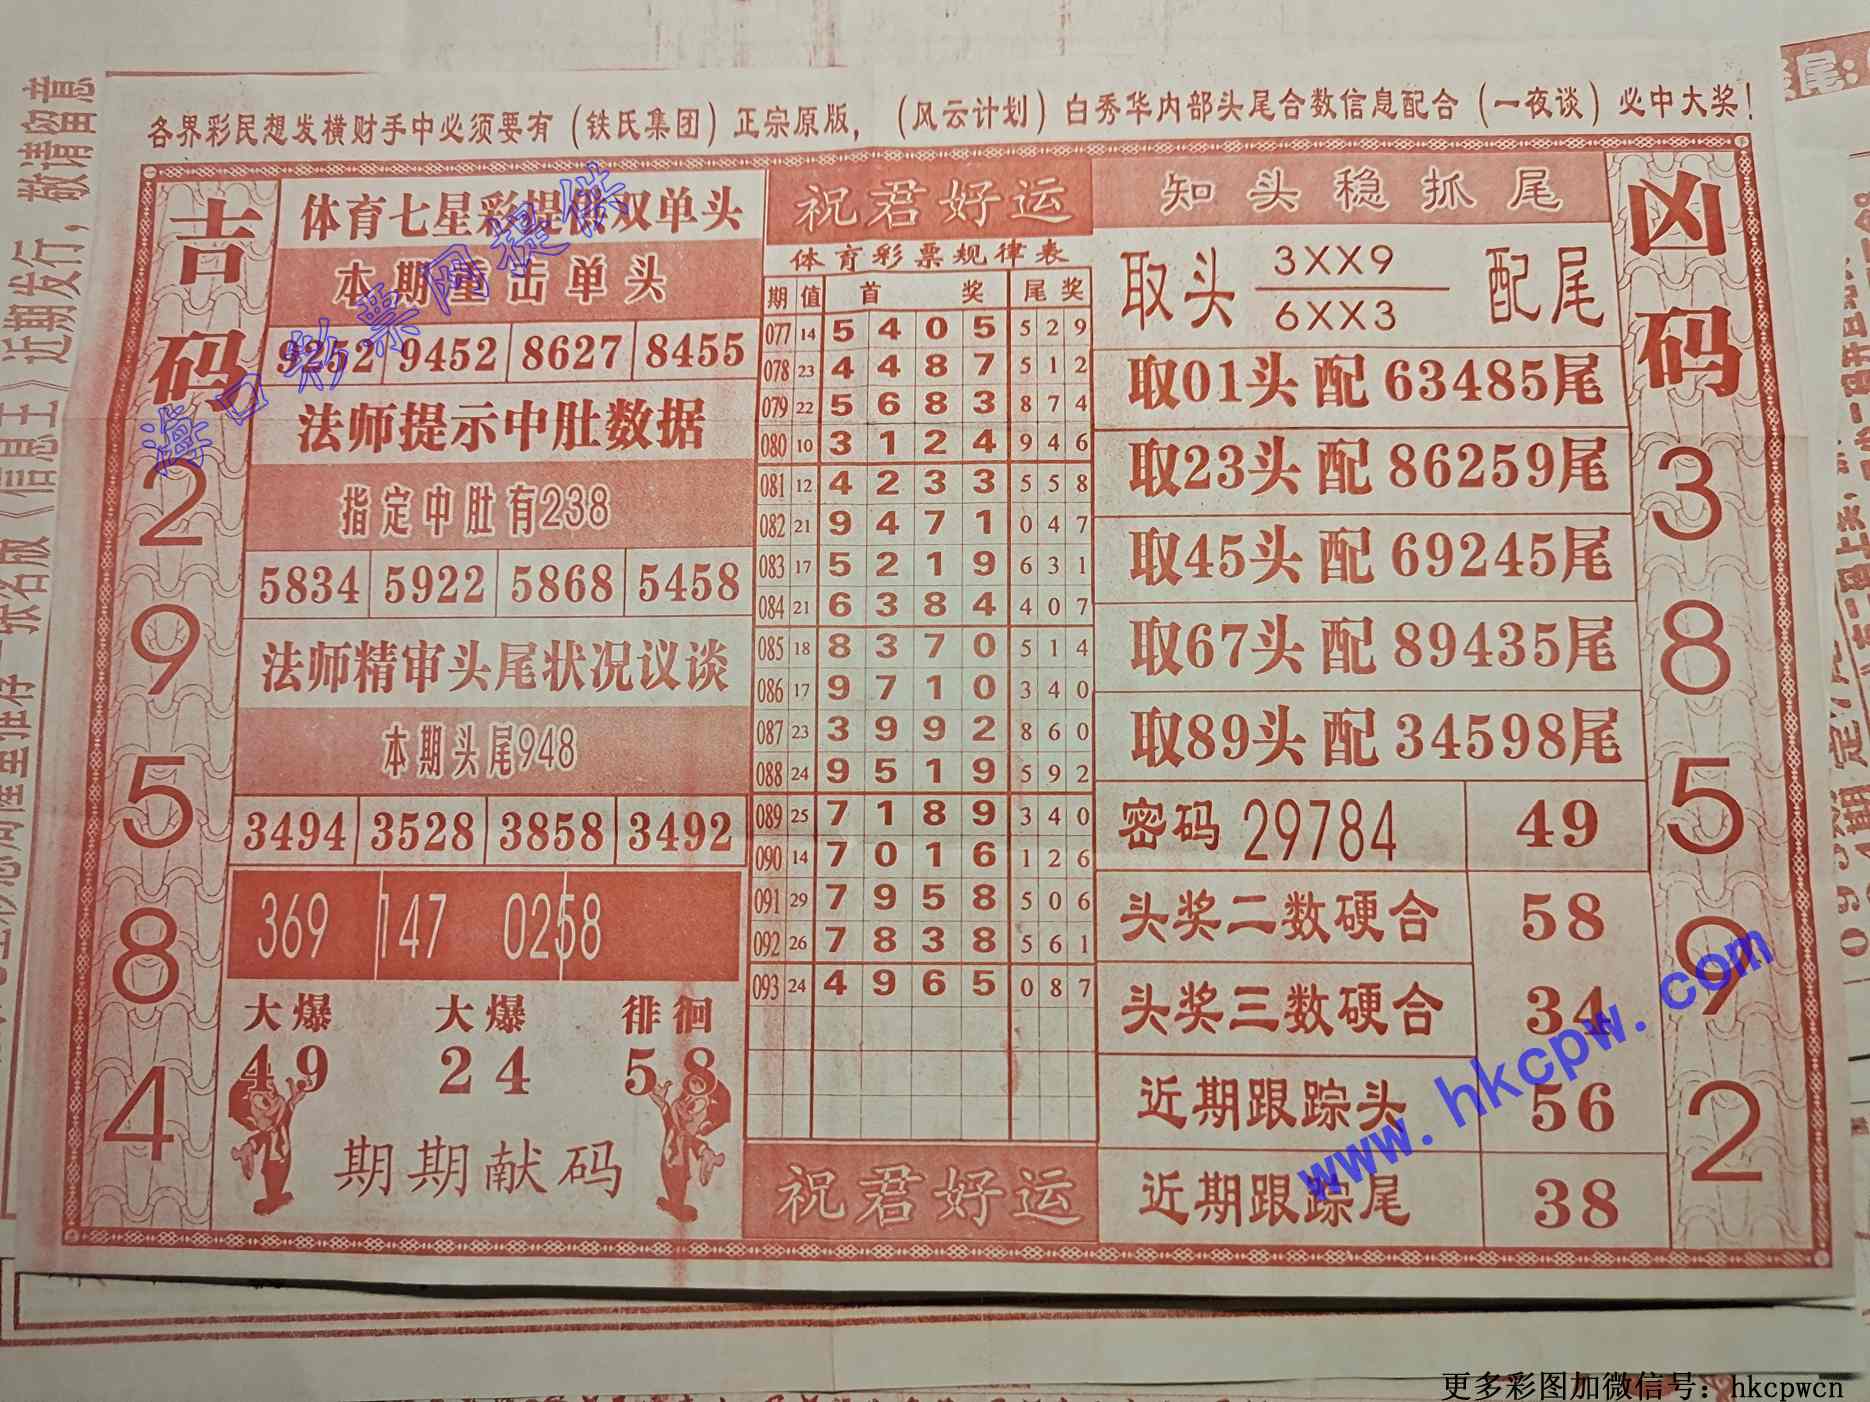 各界彩民想发横财手中必须要有（铁氏集团）正宗原版，（风云计划）白秀华内部头尾合数信息配合（一夜谈）必中大奖！
吉码
2
9
5
8
4
体育七星彩提供双单头
本期重击单头
9252 9452 8627 8455
法师提示中肚数据
指定中肚有238
5834 5922 5868 5458
法师精审头尾状况议谈
本期头尾948
3494 3528 3858 3492
369 147 0258
大爆 大爆 徘徊
49 24 58
期期献码
祝君好运
体育彩票规律表
期 值 首 奖 尾 奖
077 14 5 4 0 5 5 2 9
078 23 4 4 8 7 5 1 2
079 22 5 6 8 3 8 7 4
080 10 3 1 2 4 9 4 6
081 12 4 2 3 3 5 5 8
082 21 9 4 7 1 0 4 7
083 17 5 2 1 9 6 3 1
084 21 6 3 8 4 4 0 7
085 18 8 3 7 0 5 1 4
086 17 9 7 1 0 3 4 0
087 23 3 9 9 2 8 6 0
088 24 9 5 1 9 5 9 2
089 25 7 1 8 9 3 4 0
090 14 7 0 1 6 1 2 6
091 29 7 9 5 8 5 0 6
092 26 7 8 3 8 5 6 1
093 24 4 9 6 5 0 8 7
祝君好运
知头稳抓尾
取头 3XX9 配尾
6XX3
取01头 配 63485尾
取23头 配 86259尾
取45头 配 69245尾
取67头 配 89435尾
取89头 配 34598尾
密码 29784 49
头奖二数硬合 58
头奖三数硬合 34
近期跟踪头 56
近期跟踪尾 38
凶码
3
8
5
9
2
海口彩票网提供
www.hkcpw.com
近期发行，敬请留意
更多彩图加微信号：hkcpwcn